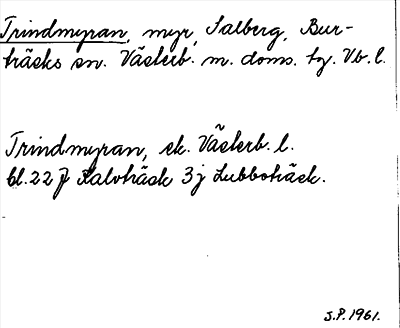 Trindmyran, myr, Salberg, Bur-
träsks sn. Västerb. m. doms. tg. Vb. l.
Trindmyran, ek. Västerb. l.
bl. 22 J Kalvträsk 3j Lubboträsk.
J.P. 1961.